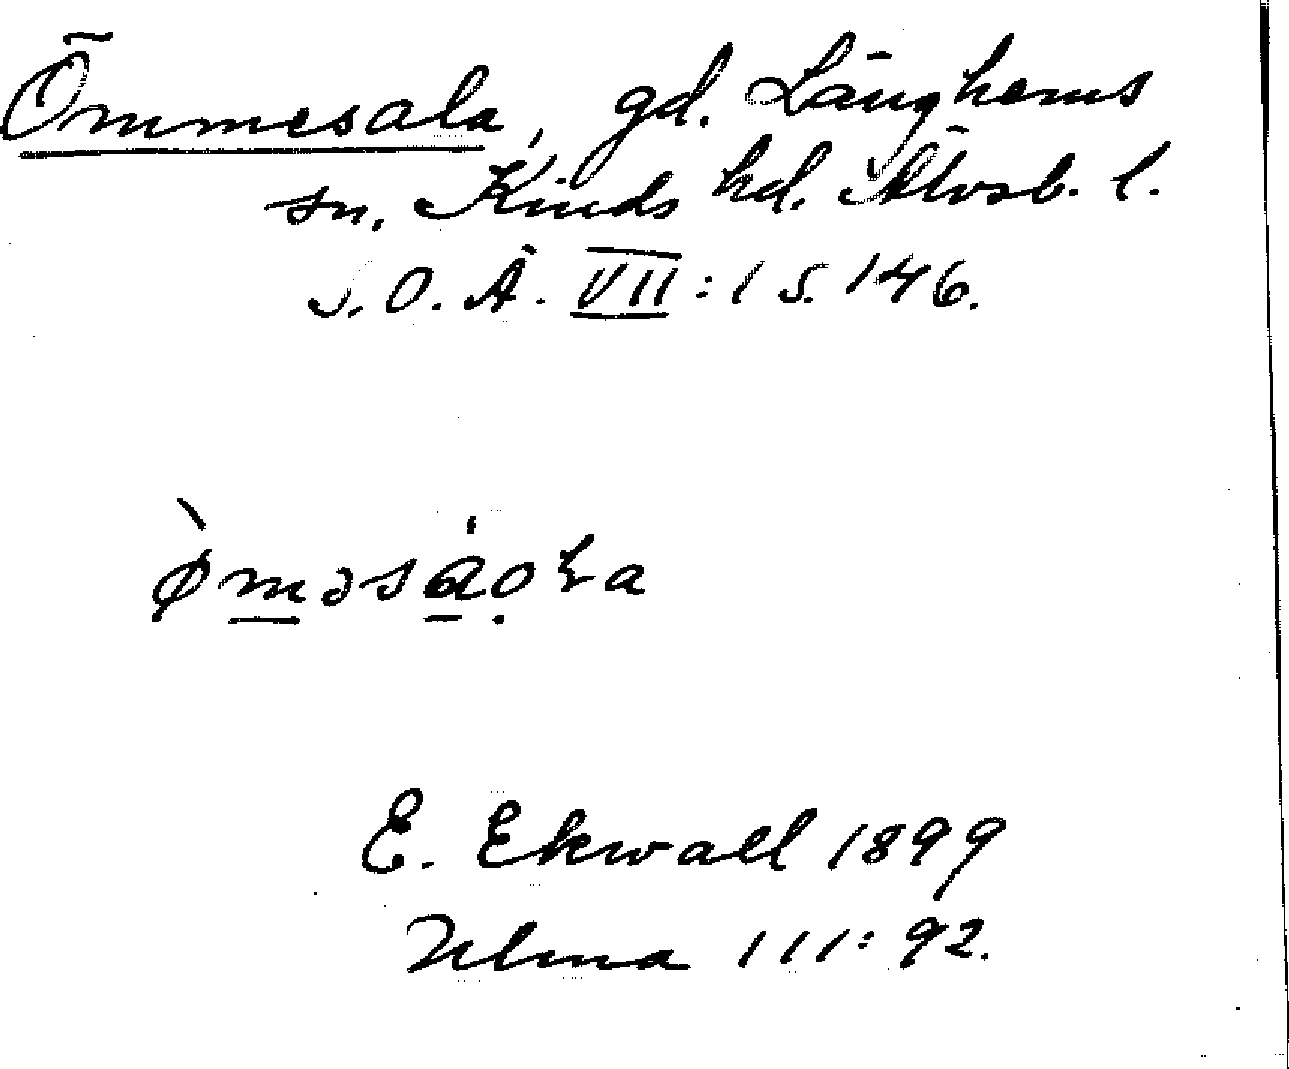 Ömmesala, gd. Länghems
sn. Kinds hd. Älvsb. l.
S. O. Ä. VII: 1 s. 146.
ø̀m̲əsa̲̍o̤ɫa
E. Ekwall 1899
Ulma 111: 92.